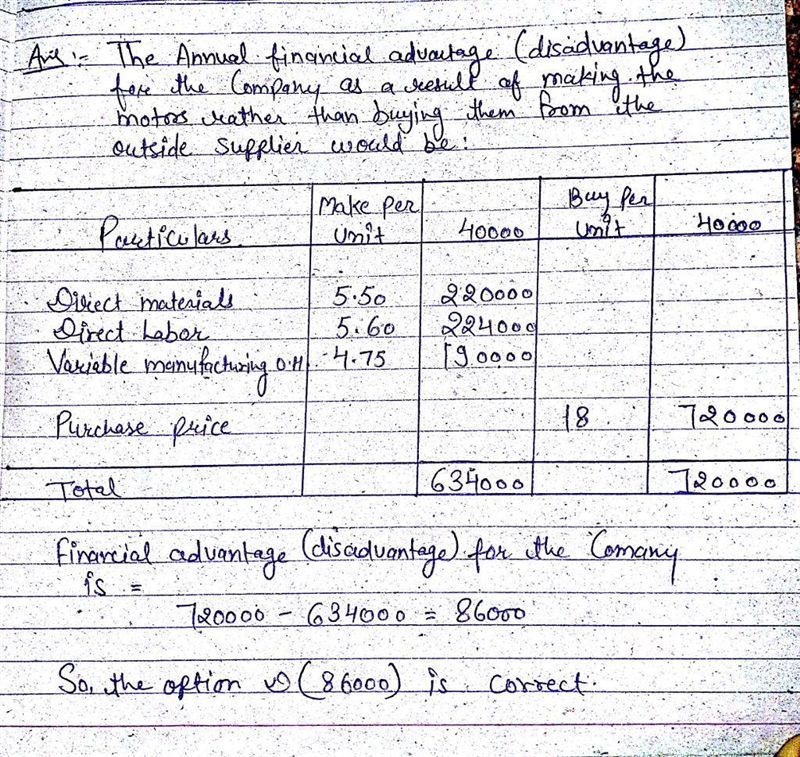 Ans :- The Annual financial advantage (disadvantage)
for the Company as a result of making the
motors rather than buying them from the
outside supplier would be :
Particulars Make Per Unit 40000 Buy Per Unit 40000
Direct materials 5.50 220000
Direct Labor 5.60 224000
Variable manufacturing O.H 4.75 190000
Purchase price 18 720000
Total 634000 720000
Financial advantage (disadvantage) for the Comany
is =
720000 - 634000 = 86000
So, the option (86000) is correct.